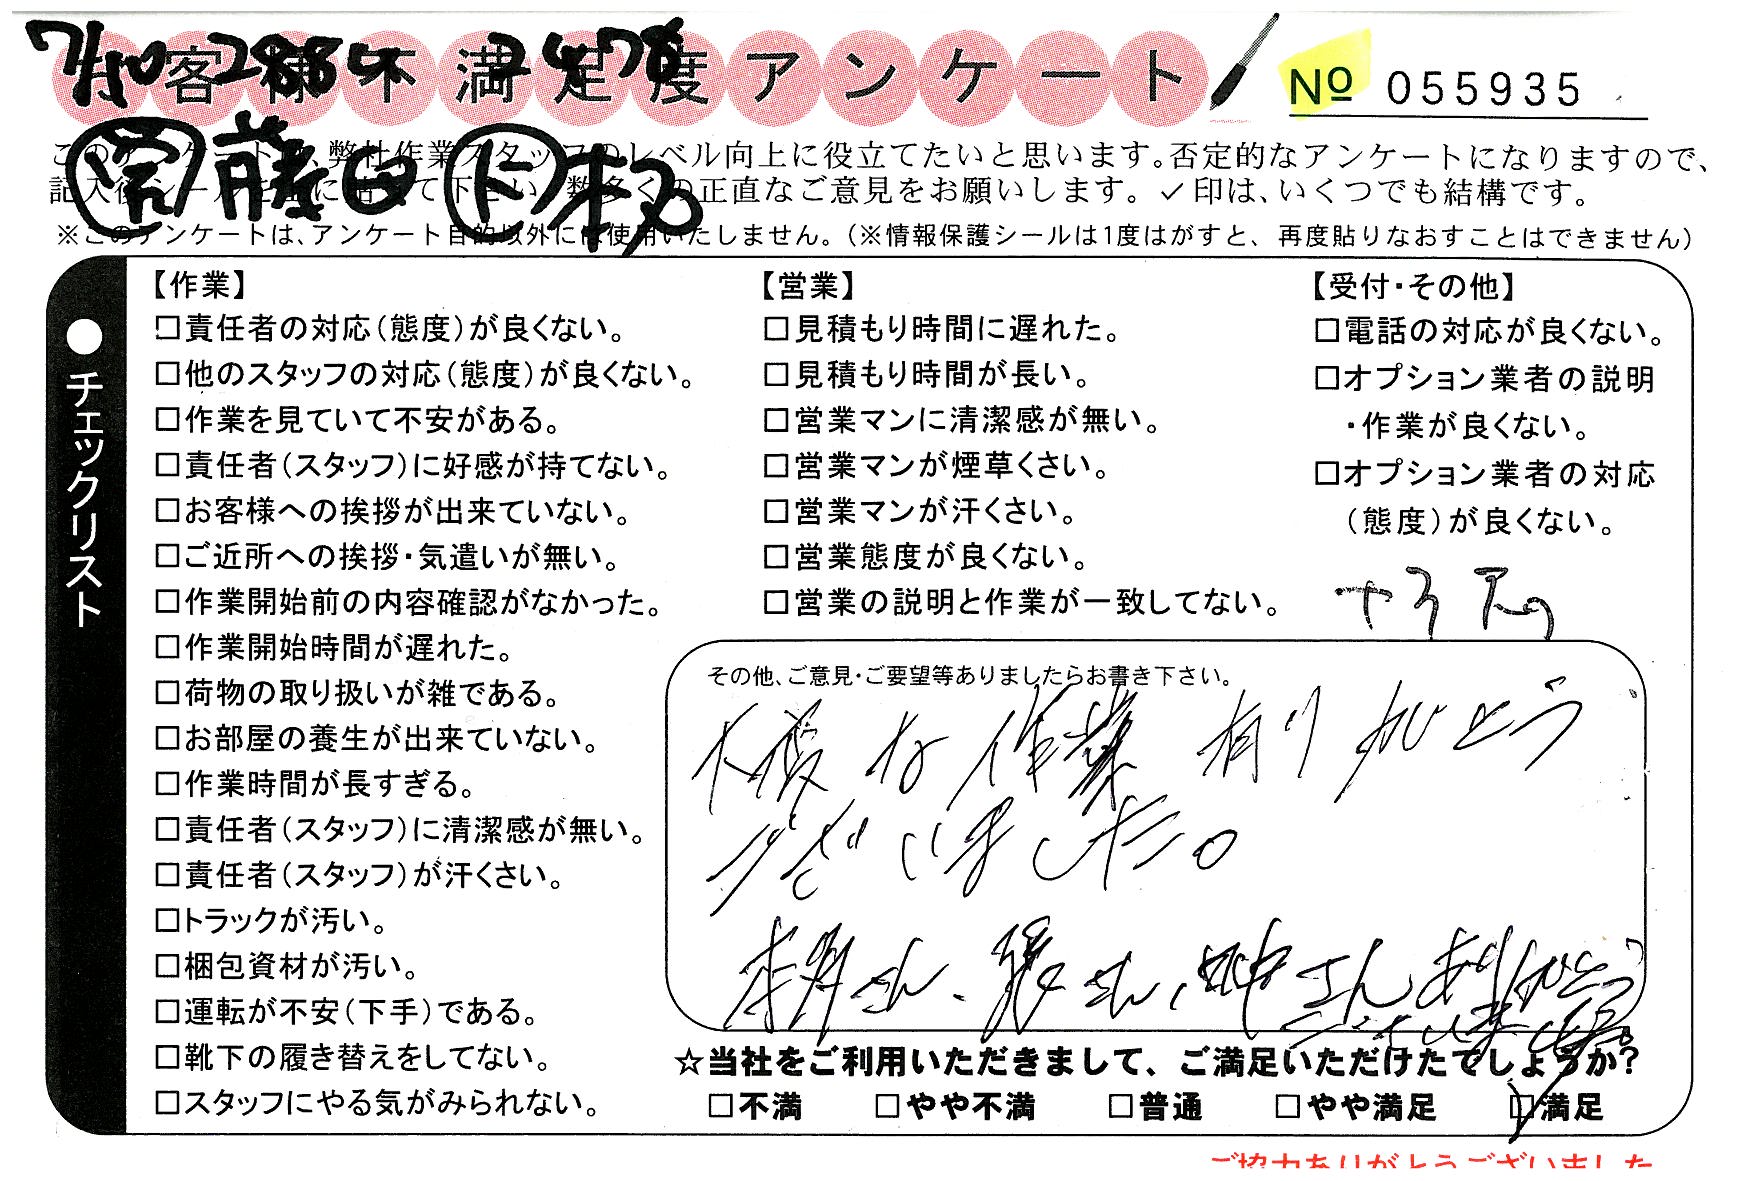 お客様不満足度アンケート
№ 055935
7/10 2885 2470
営 藤田 ト
このアンケートは、弊社作業スタッフのレベル向上に役立てたいと思います。否定的なアンケートになりますので、
記入後シールを上に貼って下さい。数多くの正直なご意見をお願いします。✓印は、いくつでも結構です。
※このアンケートは、アンケート目的以外には使用いたしません。（※情報保護シールは1度はがすと、再度貼りなおすことはできません）
●チェックリスト
【作業】
□責任者の対応（態度）が良くない。
□他のスタッフの対応（態度）が良くない。
□作業を見ていて不安がある。
□責任者（スタッフ）に好感が持てない。
□お客様への挨拶が出来ていない。
□ご近所への挨拶・気遣いが無い。
□作業開始前の内容確認がなかった。
□作業開始時間が遅れた。
□荷物の取り扱いが雑である。
□お部屋の養生が出来ていない。
□作業時間が長すぎる。
□責任者（スタッフ）に清潔感が無い。
□責任者（スタッフ）が汗くさい。
□トラックが汚い。
□梱包資材が汚い。
□運転が不安（下手）である。
□靴下の履き替えをしてない。
□スタッフにやる気がみられない。
【営業】
□見積もり時間に遅れた。
□見積もり時間が長い。
□営業マンに清潔感が無い。
□営業マンが煙草くさい。
□営業マンが汗くさい。
□営業態度が良くない。
□営業の説明と作業が一致してない。
【受付・その他】
□電話の対応が良くない。
□オプション業者の説明
・作業が良くない。
□オプション業者の対応
（態度）が良くない。
その他、ご意見・ご要望等ありましたらお書き下さい。
な作業 有りがとう
ございました。
さん、さん、さんありがとう
ございました。
☆当社をご利用いただきまして、ご満足いただけたでしょうか？
□不満 □やや不満 □普通 □やや満足 ☑満足
ご協力ありがとうございました